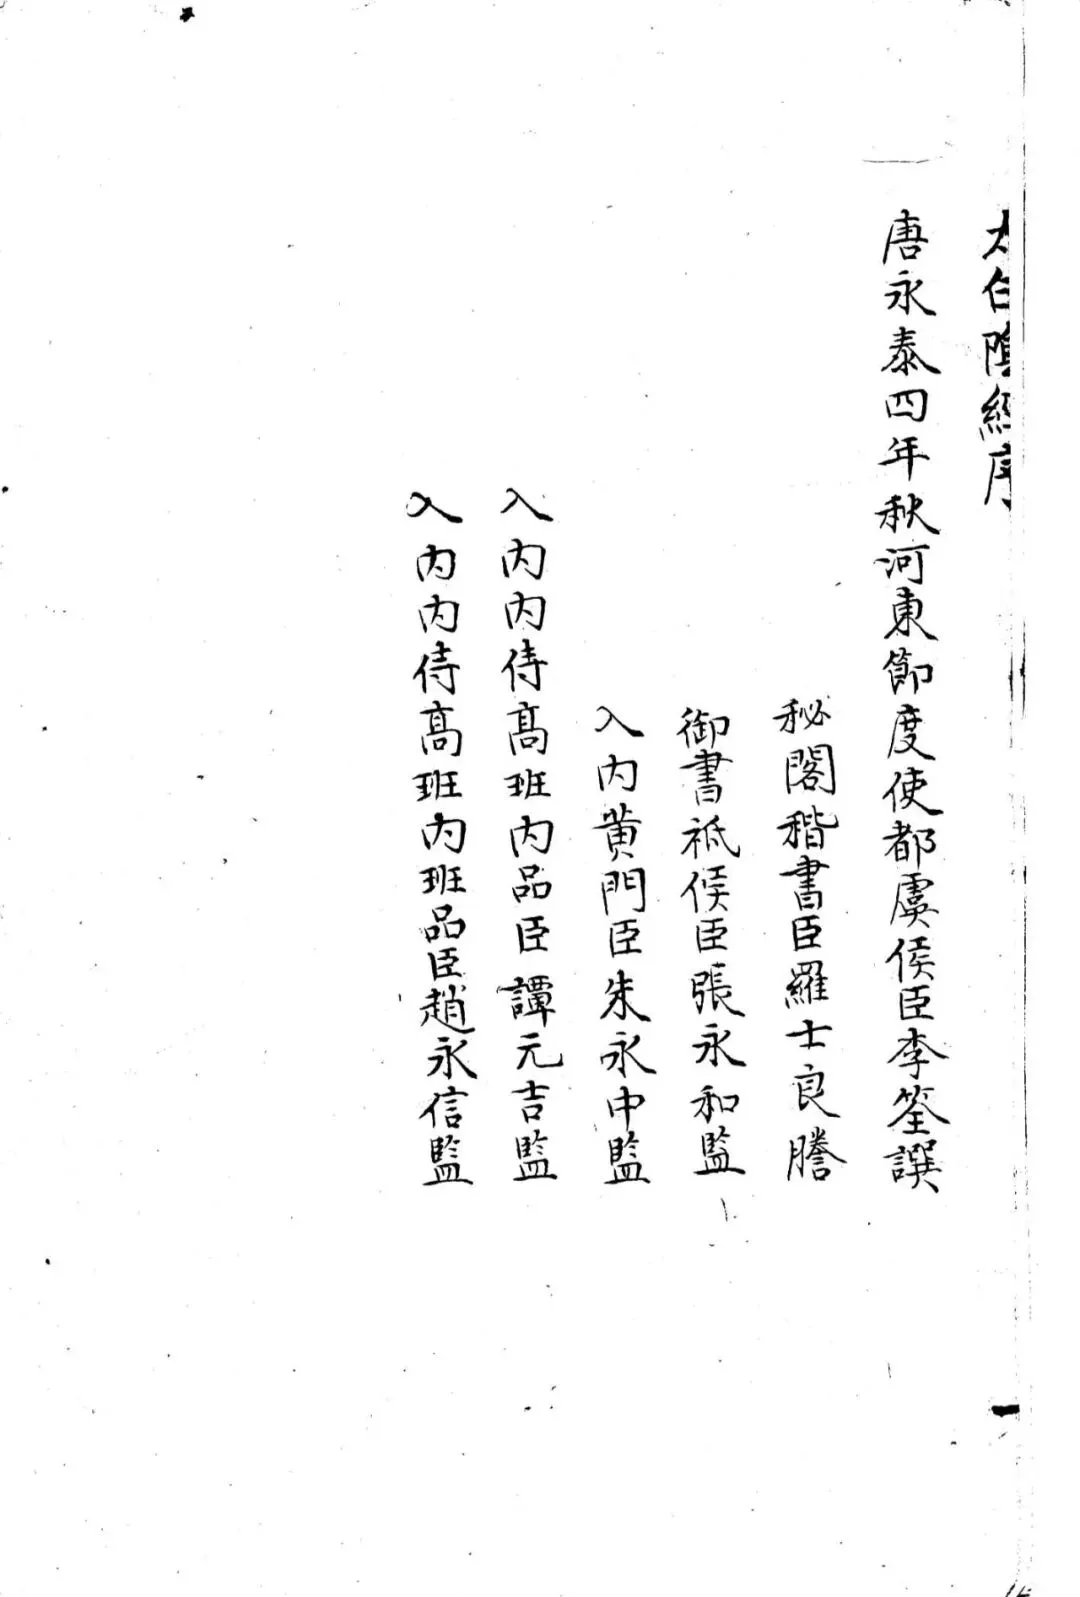 太白陰經序
唐永泰四年秋河東節度使都虞候臣李筌譔
秘閣稭書臣羅士良謄
御書祗候臣張永和監
入內黃門臣朱永中監
入內內侍高班內品臣譚元吉監
入內內侍高班內班品臣趙永信監